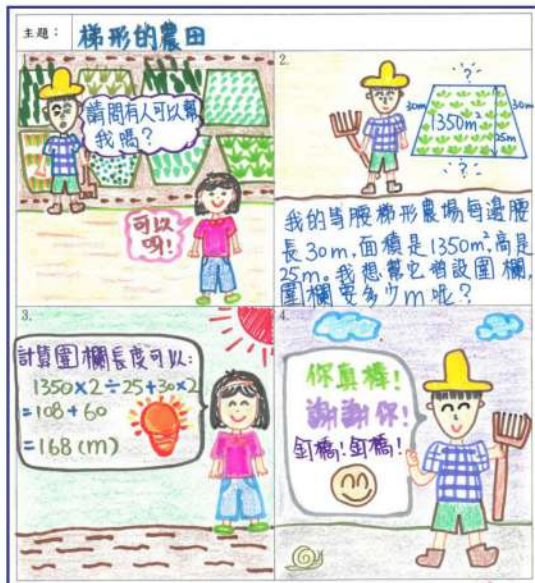 主題： 梯形的農田
請問有人可以幫
我嗎？
可以
呀！
2.
?
30m
1350m²
30m
25m
?
我的等腰梯形農場每邊腰
長30m，面積是1350m²，高是
25m。我想幫它增設圍欄，
圍欄要多少m呢？
3.
計算圍欄長度可以：
1350×2÷25+30×2
=108+60
=168(m)
4.
你真棒！
謝謝你！
釘橋！釘橋！